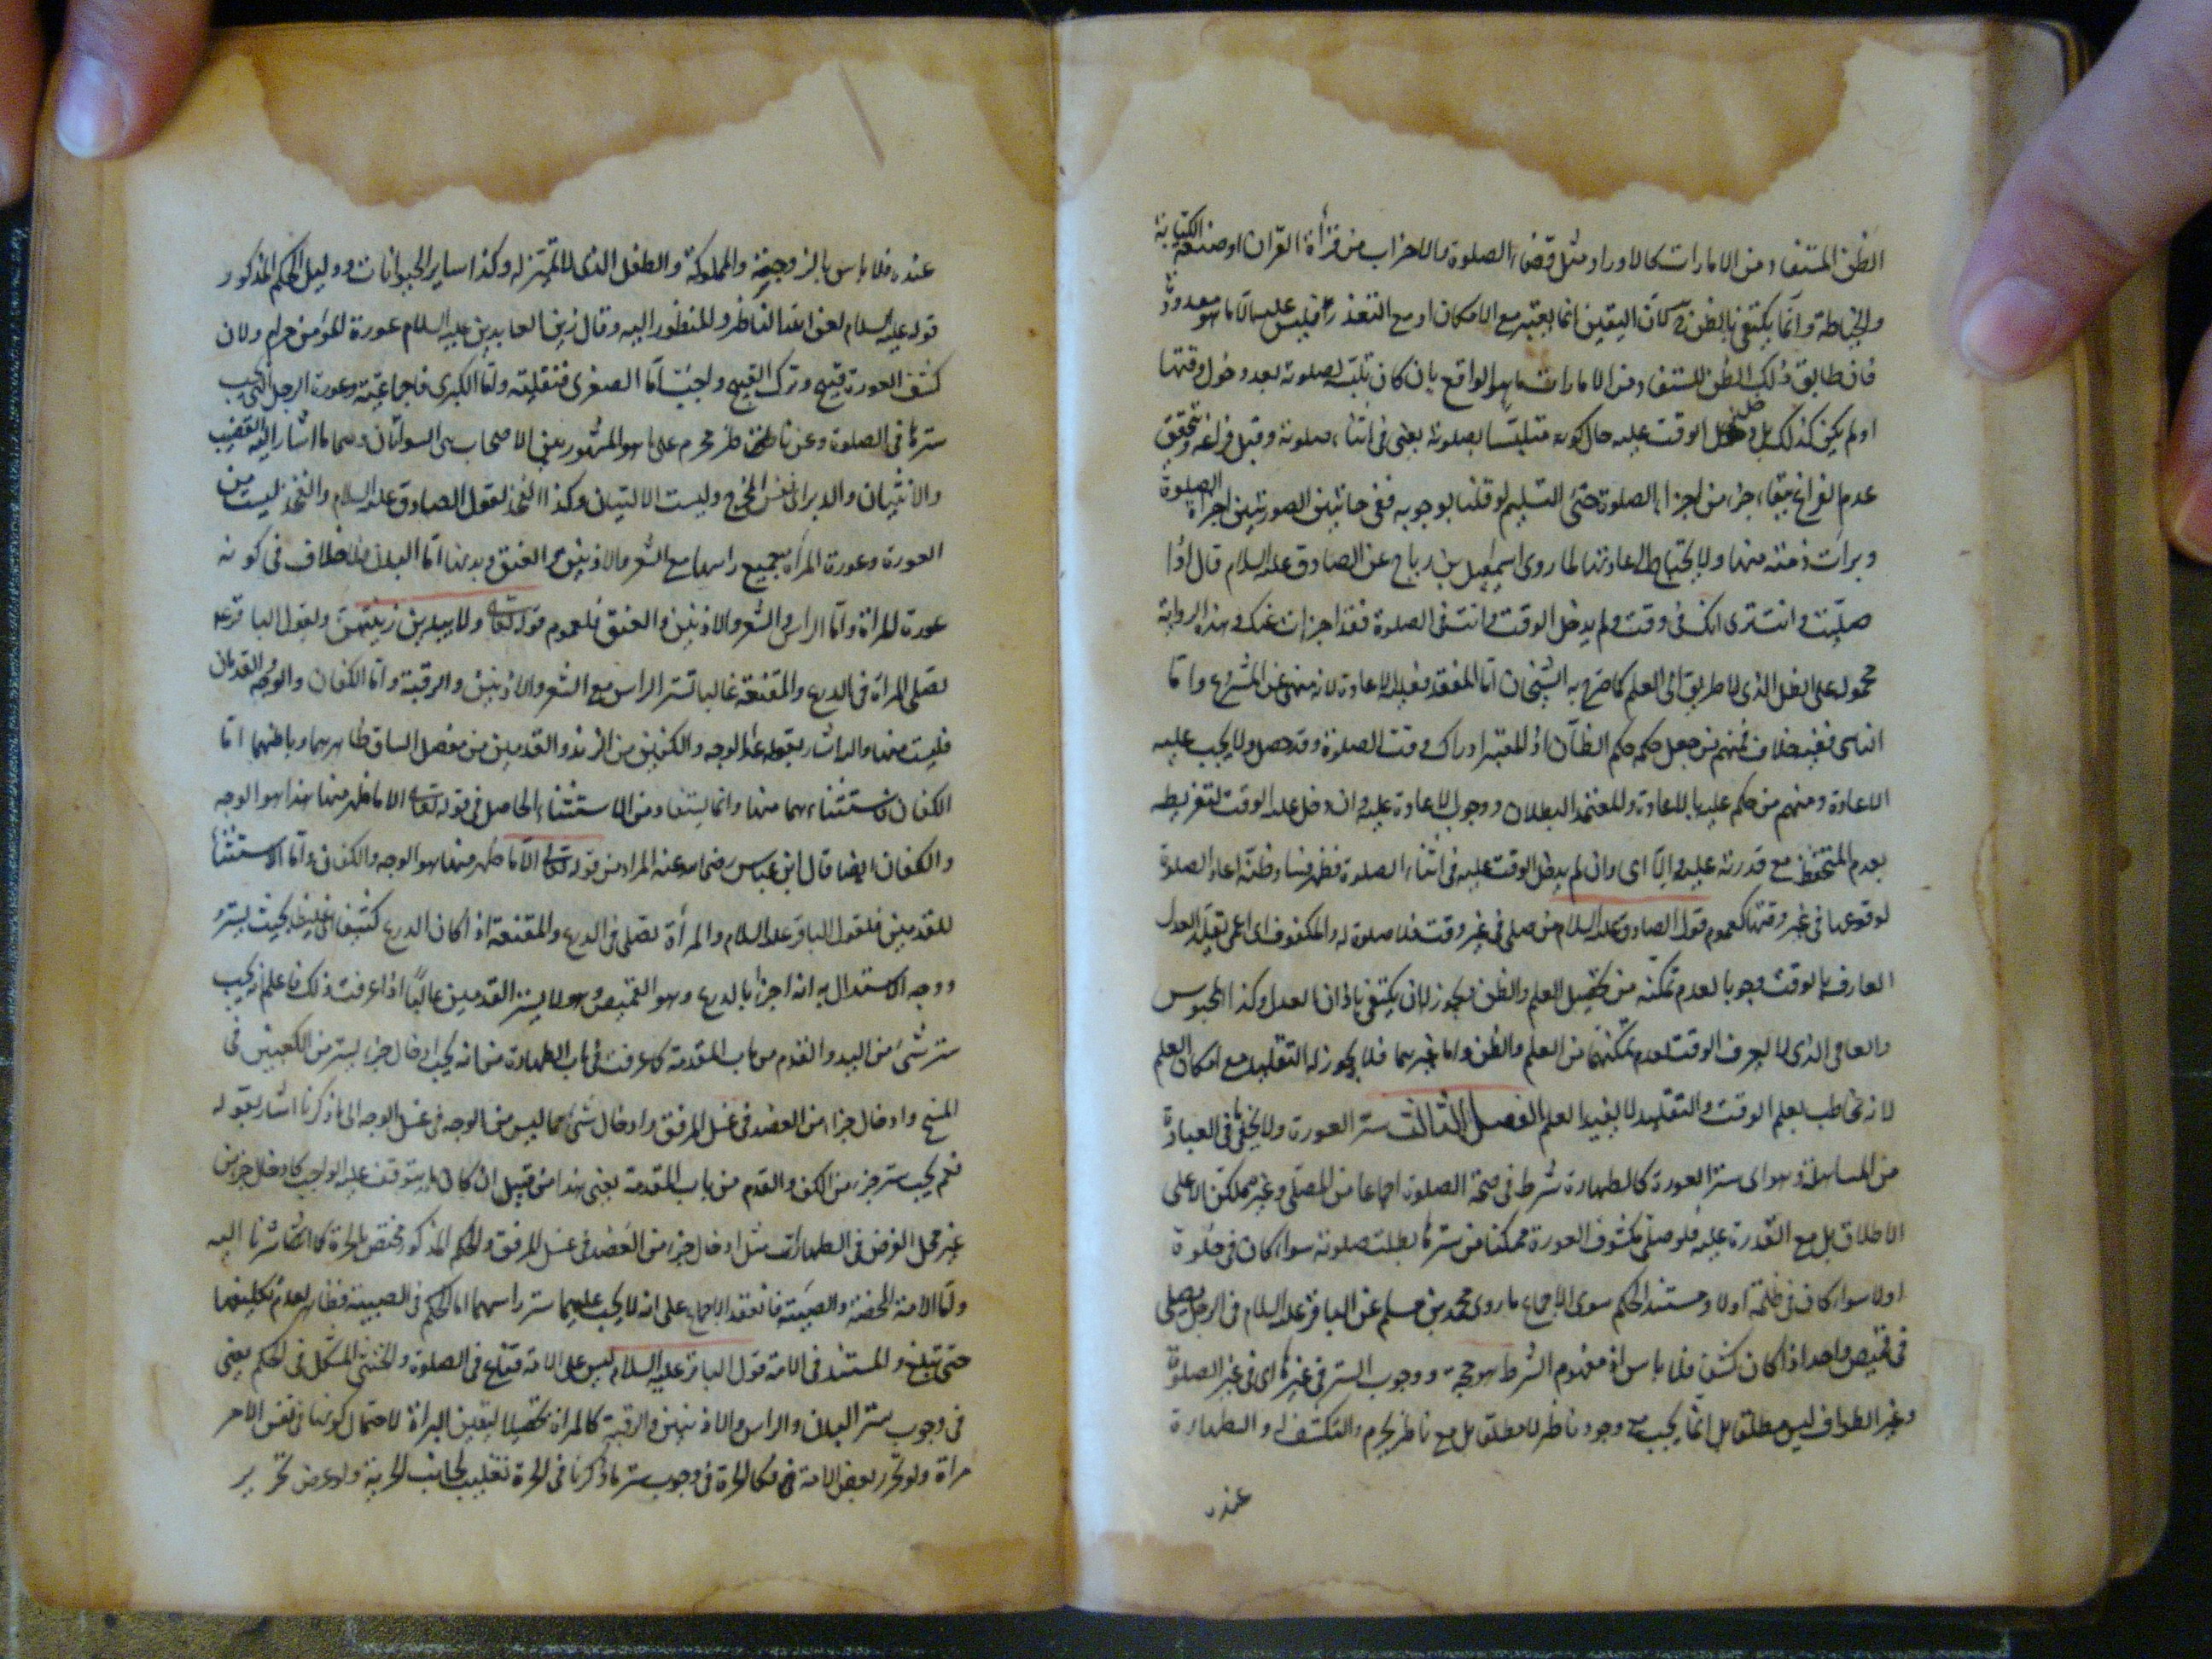 الظن المستفاد من الامارات كالاوراد مثل قضاء الصلوة والاحزاب من قراءة القران او صنعة الكتابة
والخياطة وانما يكتفى بالظن لان اليقين انما يعتبر مع الامكان او مع التعذر فليس عليه الا ما هو
فان طابق ذلك الظن المستفاد من الامارات ما هو الواقع بان كان تلبسه لصلوته بعد دخول وقتها
او لم يكن كذلك بل دخل الوقت عليه حال كونه متلبسا بصلوته يعنى فى اثناء صلوته وقبل فراغه ويتحقق
عدم الفراغ ببقاء جزء من اجزاء الصلوة حتى التسليم لو قلنا بوجوبه ففى هاتين الصورتين اجزاه الصلوة
وبرات ذمته منها ولا يحتاج الى اعادتها لما روى اسمعيل بن رباح عن الصادق عليه السلام قال اذا
صليت وانت ترى انك فى وقت ولم يدخل الوقت وانت فى الصلوة فقد اجزات عنك وهذه الرواية
محمولة على الظن الذى لا طريق الى العلم كما صرح به الشيخان اما المفقد فعليه الاعادة لانه منهى عن الشروع واما
الناسى ففيه خلاف فمنهم من جعل حكمه حكم الظان اذ المعتبر ادراك وقت الصلوة وقد حصل ولا يجب عليه
الاعادة ومنهم من حكم عليه بالاعادة والمعتمد البطلان ووجوب الاعادة عليه وان دخل عليه الوقت لتفريطه
بعدم التحفظ مع قدرته عليه والا اى وان لم يدخل الوقت عليه فى اثناء الصلوة فظهر فساد ظنه اعاد الصلوة
لوقوعها فى غير وقتها لعموم قول الصادق عليه السلام من صلى فى غير وقت فلا صلوة له والمكفوف اى اعمى تقليد العدل
العارف بالوقت وجوبا لعدم تمكنه من تحصيل العلم والظن فيجوز له ان يكتفى باذان العدل وكذا المحبوس
والعامى الذى لا يعرف الوقت لعدم تمكنهما من العلم والظن واما غيرهما فلا يجوز له التقليد مع امكان العلم
لانه مخاطب بعلم الوقت والتقليد لا يفيد العلم الفصل الثالث ستر العورة ولا يخفى ما فى العبارة
من المساهلة وهو اى ستر العورة كالطهارة شرط فى صحة الصلوة اجماعا من المصلى وغير ممكن لا على
الاطلاق بل مع القدرة عليه فلو صلى مكشوف العورة متمكنا من سترها بطلت صلوته سواء كان فى خلوة
او لا سواء كان فى ظلمة او لا ومستند الحكم سوى الاجماع ما روى محمد بن مسلم عن الباقر عليه السلام فى الرجل يصلى
فى قميص واحد اذا كان كثيفا فلا باس اذ مفهوم الشرط هو حجة ووجوب الستر فى غيرها اى فى غير الصلوة
وغير الطواف ليس مطلقا بل انما يجب مع وجود ناظر لا مطلقا بل مع ناظر يحرم والتكشف او الطهارة
عنده
عنده فلا باس بالزوجة والمملوكة والطفل الذى لا تميز له وكذا ساير الحيوانات ودليل الحكم المذكور
قوله عليه السلام لعن الله الناظر والمنظور اليه وقال زين العابدين عليه السلام عورة المؤمن حرام ولان
كشف العورة قبيح وترك القبيح واجب اما الصغرى فنقلية واما الكبرى فاجماعية وعورة الرجل التى يجب
سترها فى الصلوة وعن ناظر محرم على ما هو المشهور بين الاصحاب هى السواتان وهما ما اشار اليه القضيب
والانثيان والدبر اى نفس المخرج وليست الاليتان وكذا الفخذ لقول الصادق عليه السلام والفخذ ليست من
العورة وعورة المراة جميع راسها مع الشعر والاذنين والعنق وبدنها اما البدن فلا خلاف فى كونه
عورة للمراة واما الراس والشعر والاذنين والعنق فلعموم قوله تعالى ولا يبدين زينتهن ولقول الباقر عم
تصلى المراة فى الدرع والمقنعة غالبا تستر الراس مع الشعر والاذنين والرقبة واما الكفان والوجه والقدمان
فليست منها والى ما اشار بقوله عدا الوجه والكفين من الزند والقدمين من مفصل الساق ظاهرهما وباطنهما اما
الكفان فاستثناءهما منها وانما يستفاد من الاستثناء الحاصل فى قوله تعالى الا ما ظهر منها هذا هو الوجه
والكفان ايضا قال ابن عباس رضى الله عنه المراد من قوله تعالى الا ما ظهر منها هو الوجه والكفان واما الاستثناء
للقدمين فلقول الباقر عليه السلام والمرأة تصلى فى الدرع والمقنعة اذا كان الدرع كثيفا اى غليظا بحيث يستر
ووجه الاستدلال به انه اجزا بالدرع وهو القميص وهو لا يستر القدمين غالبا اذا عرفت ذلك فاعلم انه يجب
ستر شئ من اليد والقدم من باب المقدمة كما عرفت فى باب الطهارة من انه يجب ادخال جزء يستر من الكعبين فى
المسح وادخال جزء من العضد فى غسل المرفق وادخال شئ مما ليس من الوجه فى غسل الوجه الى ما ذكرنا اشار بقوله
نعم يجب ستر جزء من الكف والقدم من باب المقدمة يعنى هذا من قبيل ان كان ما يتوقف عليه الواجب كادخال جزء من
غير محل الفرض فى الطهارات مثل ادخال جزء من العضد فى غسل المرفق والحكم المذكور مختص بالحرة كما اشرنا اليه
واما الامة المحضة والصبية فانعقد الاجماع على انه لا يجب عليهما ستر راسهما اما الحكم فى الصبية فظاهر لعدم تكليفها
حتى تبلغ والمستند فى الامة قول الباقر عليه السلام ليس على الامة قناع فى الصلوة والخنثى المشكل فى الحكم يعنى
فى وجوب ستر البدن والراس والاذنين والرقبة كالمراة تحصيلا ليقين البراة لاحتمال كونها فى نفس الامر
مراة ولو تحرر بعض الامة فكالحرة فى وجوب ستر ما ذكرنا فى الحرة تغليبا لجانب الحرية ولو عرض تحرير